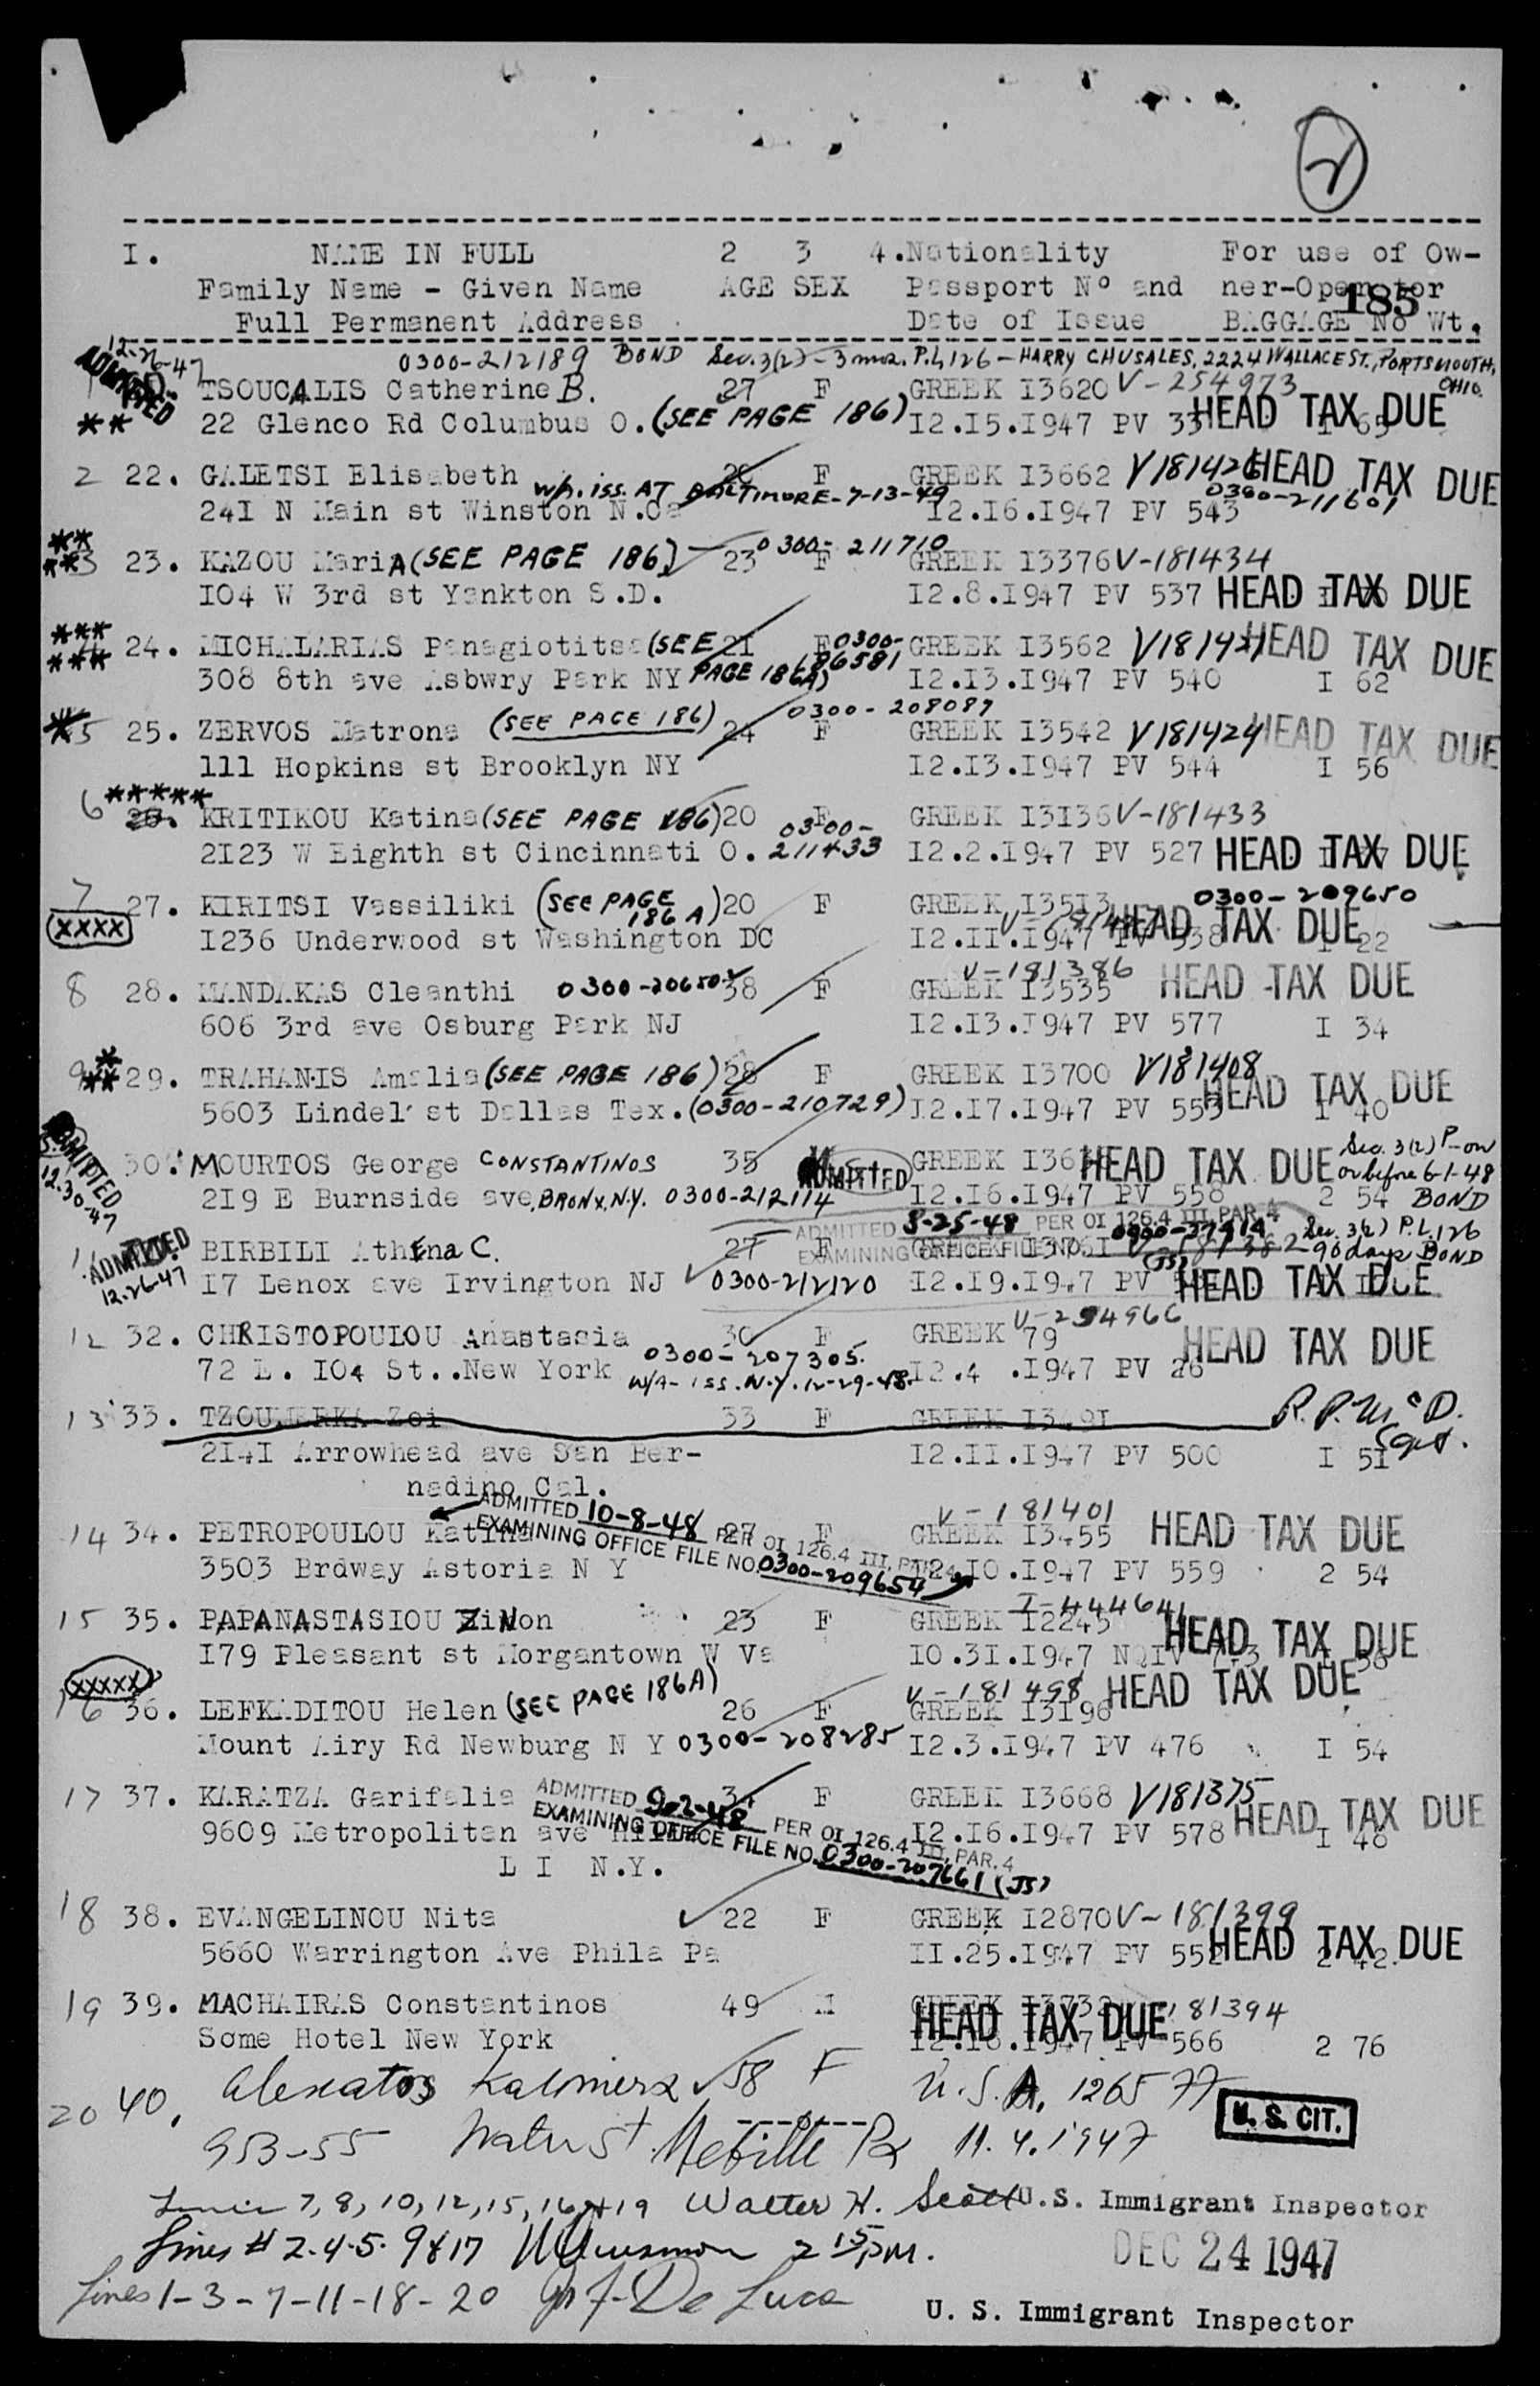 2
I. NAME IN FULL 2 3 4.Nationality For use of Ow-
Family Name - Given Name AGE SEX Passport Nº and ner-Operator
185
Full Permanent Address Date of Issue BAGGAGE No Wt.
12-26-47 ADMITTED
0300-212189 BOND Sec. 3(2) - 3 mos. P.L. 126 - HARRY CHUSALES, 2224 WALLACE ST., PORTSMOUTH, OHIO
TSOUCALIS Catherine B. 27 F GREEK I3620 V-254973
** 22 Glenco Rd Columbus O. (SEE PAGE 186) I2.I5.I947 PV 33 HEAD TAX DUE I 65
2 22. GALETSI Elisabeth F GREEK I3662 V181426 HEAD TAX DUE
W/A. ISS. AT BALTIMORE-7-13-49 0300-211601
24I N Main st Winston N.Ca I2.I6.I947 PV 543
** **3 23. KAZOU MariA (SEE PAGE 186) 23 0300-211710 F GREEK I3376 V-181434
I04 W 3rd st Yankton S.D. I2.8.I947 PV 537 HEAD TAX DUE
*** *** 24. MICHALARIAS Panagiotitsa (SEE PAGE 186A) 21 F 0300-186581 GREEK I3562 HEAD TAX DUE
308 8th ave Asbwry Park NY I2.I3.I947 PV 540 I 62
*5 25. ZERVOS Matrona (SEE PAGE 186) 24 F 0300-208087 GREEK I3542 V181424 HEAD TAX DUE
111 Hopkins st Brooklyn NY I2.I3.I947 PV 544 I 56
6 ***** 26. KRITIKOU Katina (SEE PAGE 186) 20 F 0300-211433 GREEK I3I36 V-181433
2I23 W Eighth st Cincinnati O. I2.2.I947 PV 527 HEAD TAX DUE
7 (XXXX) 27. KIRITSI Vassiliki (SEE PAGE 186 A) 20 F GREEK I3513 0300-209650
I236 Underwood st Washington DC I2.II.I947 PV 538 HEAD TAX DUE I 22
8 28. MANDAKAS Cleanthi 38 F GREEK I3535 V-181386 HEAD TAX DUE
606 3rd ave Osburg Park NJ I2.I3.I947 PV 577 I 34
9 * ** 29. TRAHANIS Amalia (SEE PAGE 186) 28 F GREEK I3700 V181408
5603 Lindel st Dallas Tex. (0300-210729) I2.I7.I947 PV 553 HEAD TAX DUE I 40
ADMITTED 12-30-47
30. MOURTOS George CONSTANTINOS 35 ADMITTED GREEK HEAD TAX DUE Sec. 3(2) P- on or before 6-1-48 BOND
2I9 E Burnside ave, BRONX, N.Y. 0300-212114 I2.I6.I947 PV 558 2 54
ADMITTED 8-25-48 PER OI 126.4 III, PAR. 4
EXAMINING OFFICE FILE NO. (JS)
ADMITTED 12-26-47
BIRBILI AthEna C. 27 F GREEK Sec. 3(2) P.L. 126 90 days BOND
I7 Lenox ave Irvington NJ 0300-212120 I2.I9.I947 PV HEAD TAX DUE
12 32. CHRISTOPOULOU Anastasia 30 F GREEK 79 HEAD TAX DUE
0300-207305.
72 E. I04 St..New York W/A- ISS. N.Y. 12-29-48. I2.4 .I947 PV 26
13 33. TZOUMERKA Zoi 33 F GREEK I349I R. P. McD.
2I4I Arrowhead ave San Ber- I2.II.I947 PV 500 I 51
nadino Cal.
ADMITTED 10-8-48 PER OI 126.4 III, PAR. 4
EXAMINING OFFICE FILE NO. 0300-209654
14 34. PETROPOULOU Katina 27 F GREEK I3455 V-181401 HEAD TAX DUE
3503 Brdway Astoria N Y I2.I0.I947 PV 559 2 54
15 35. PAPANASTASIOU ZiNon 23 F GREEK I2245 HEAD TAX DUE
I79 Pleasant st Morgantown W Va I0.3I.I947 NQIV
(XXXXX) 16 36. LEFKADITOU Helen (SEE PAGE 186A) 26 F GREEK I3I96 V-181498 HEAD TAX DUE
Mount Airy Rd Newburg N Y 0300-208285 I2.3.I947 PV 476 I 54
17 37. KARATZA Garifalia F GREEK I3668 V181375
ADMITTED 9-2-48 PER OI 126.4 III, PAR. 4
EXAMINING OFFICE FILE NO. 0300-207661 (JS)
9609 Metropolitan ave I2.I6.I947 PV 578 HEAD TAX DUE I 48
L I N.Y.
18 38. EVANGELINOU Nita 22 F GREEK I2870 V-181399
5660 Warrington Ave Phila Pa II.25.I947 PV 552 HEAD TAX DUE 2 42
19 39. MACHAIRAS Constantinos 49 M GREEK 181394
HEAD TAX DUE
Some Hotel New York I2.I8.I947 PV 566 2 76
20 40. Alexatos Kalomera 58 F U.S.A. 126577
U. S. CIT.
953-55 11.4.1947
Lines 7, 8, 10, 12, 15, 16 & 19 Walter H. Scott U.S. Immigrant Inspector
Lines # 2-4-5-9 & 17 2 15 PM.
DEC 24 1947
Lines 1-3-7-11-18-20 De Luca
U. S. Immigrant Inspector